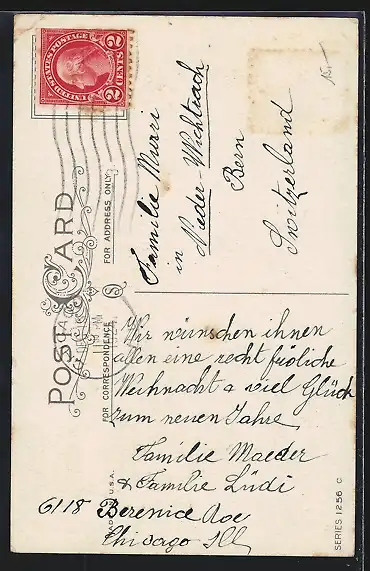 UNITED STATES POSTAGE
2 CENTS 2
POST CARD
FOR ADDRESS ONLY
Familie Murri
in Nieder-Wichtrach
Bern
Switzerland
15.-
FOR CORRESPONDENCE
Wir wünschen ihnen
allen eine recht fröliche
Weihnacht & viel Glück
zum neuen Jahre
Familie Maeder
& Familie Lüdi
6118 Berenice Ave
Chicago Ill
MADE IN U.S.A.
SERIES 1256 C